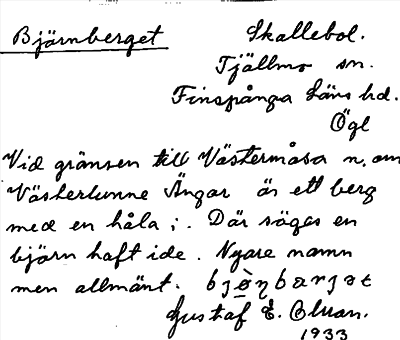 Björnberget
Skallebol.
Tjällmo sn.
Finspånga Läns hd.
Ögl
Vid gränsen till Västermåsa n. om
Västerlunne Ängar är ett berg
med en håla i. Där säges en
björn haft ide. Nyare namn
men allmänt.
Gustaf E.
1933